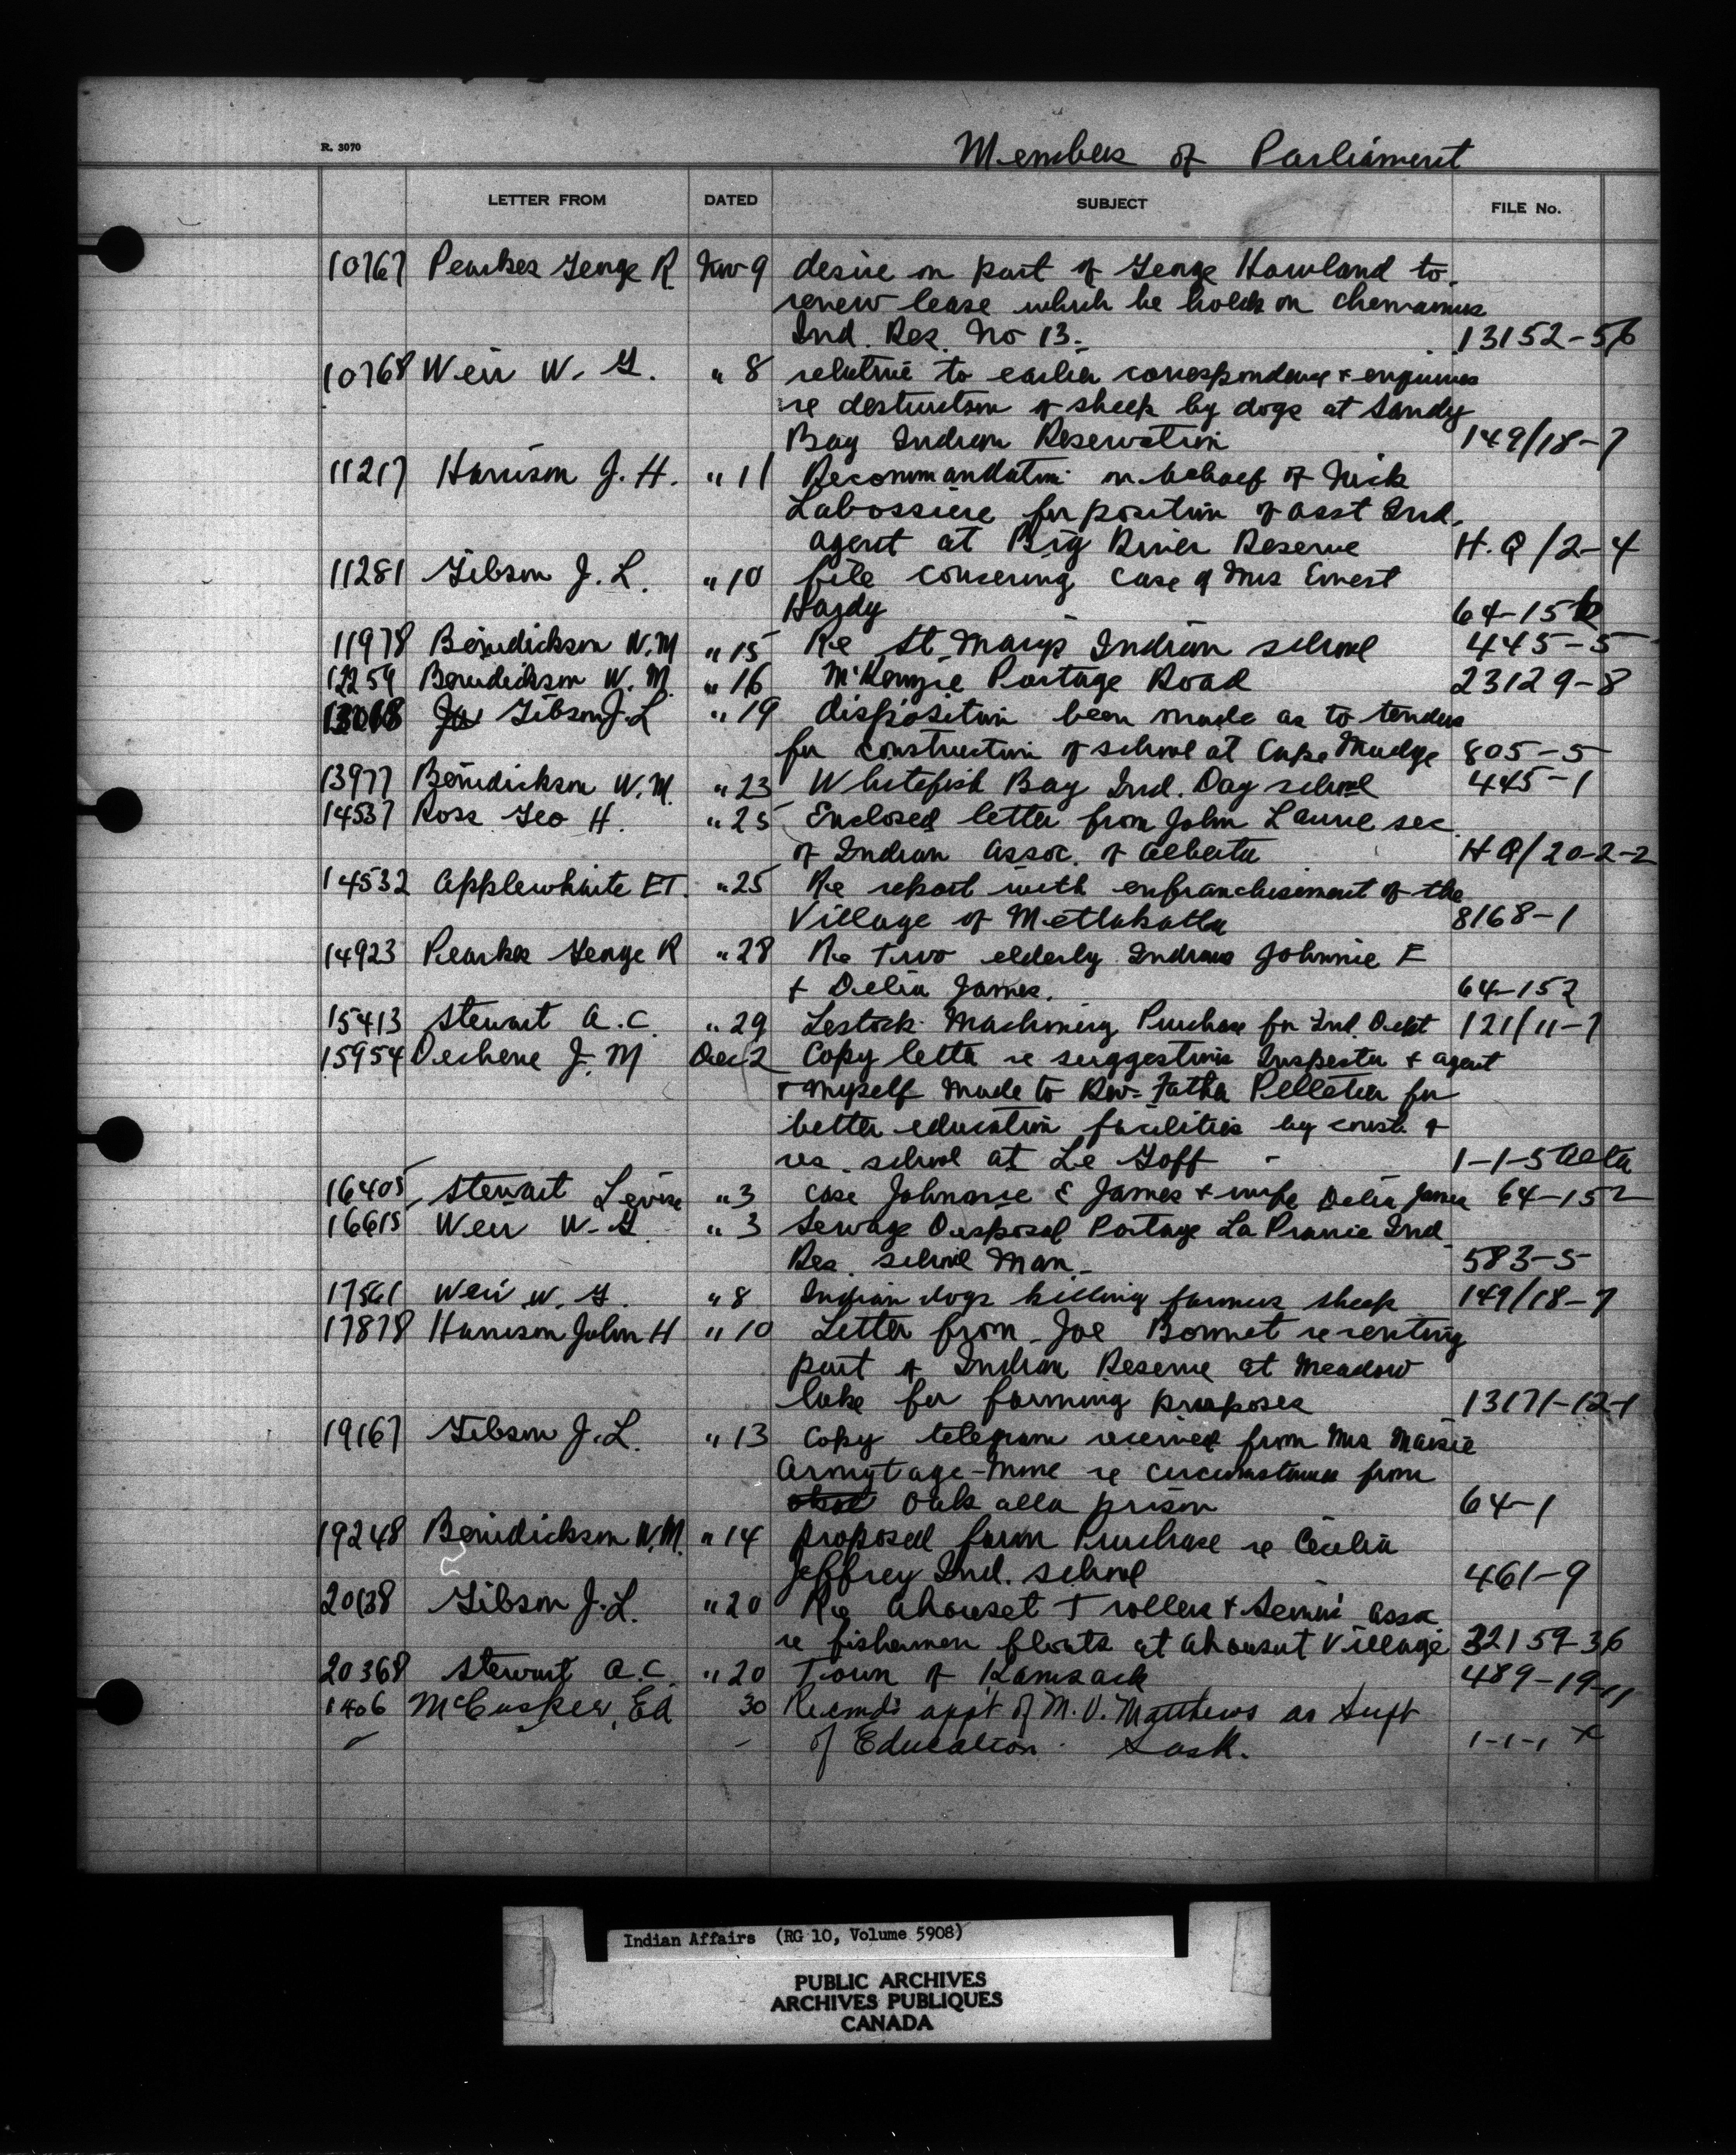 R. 3070
Members of Parliament
LETTER FROM DATED SUBJECT FILE No.
10767 Pearkes George R Nov 9 desire on part of George Howland to
renew lease which he holds on Chemainus
Ind. Res. No 13. 13152-56
10768 Weir W. G. " 8 relative to earlier correspondence + enquiries
re destruction of sheep by dogs at Sandy
Bay Indian Reservation 149/18-7
11217 Harrison J. H. " 11 Recommandation on behalf of Nick
Labossiere for position of asst Ind.
agent at Big River Reserve H.Q/2-4
11281 Gibson J. L. " 10 file concerning case of Mrs Ernest
Hardy 64-152
11978 Benidickson W.M " 15 Re St. Marys Indian school 445-5
12259 Benidickson W. M. " 16 McKenzie Portage Road 23129-8
Gibson J.L " 19 disposition been made as to tenders
for construction of school at Cape Mudge 805-5
13977 Benidickson W.M. " 23 Whitefish Bay Ind. Day school 445-1
14537 Ross Geo H. " 25 Enclosed letter from John Laurie sec.
of Indian Assoc. of Alberta H Q/20-2-2
14532 Applewhaite ET. " 25 Re report with enfranchisement of the
Village of Metlakatla 8168-1
14923 Pearkes George R " 28 Re Two elderly Indians Johnnie E
+ Delia James. 64-152
15413 Stewart A.C. " 29 Lestock Machinery Purchase for Ind. Dept 121/11-7
15954 Dechene J. M Dec 2 Copy letter re suggestions Inspector + agent
+ myself made to Rev. Father Pelletier for
better education facilities by const. of
res. school at Le Goff - 1-1-5 Alta
16405 Stewart " 3 case Johnnie E James + wife Delia James 64-152
16615 Weir W. G. " 3 Sewage Disposal Portage La Prairie Ind
Res. school Man. 583-5
17561 Weir W. G. " 8 Indian dogs killing farmers sheep 149/18-7
17878 Harrison John H " 10 Letter from Joe Bonnet re renting
part of Indian Reserve at Meadow
lake for farming purposes 13171-12-1
19167 Gibson J.L. " 13 Copy telegram received from Mrs Maisie
Armytage-Moore re circumstances from
Oak alla prison 64-1
19248 Benidickson W.M. " 14 proposed farm Purchase re Cecilia
Jeffrey Ind. school 461-9
20138 Gibson J.L. " 20 Re Ahouset Trollers + Assoc
re fishermen floats at Ahousat Village 32159-36
20368 Stewart A.C. " 20 Town of Kamsack 489-19-11
1406 McCusker, Ed 30 Recmd's appt of M. V. Matthews as Supt
of Education Sask. 1-1-1 X
Indian Affairs (RG 10, Volume 5908)
PUBLIC ARCHIVES
ARCHIVES PUBLIQUES
CANADA